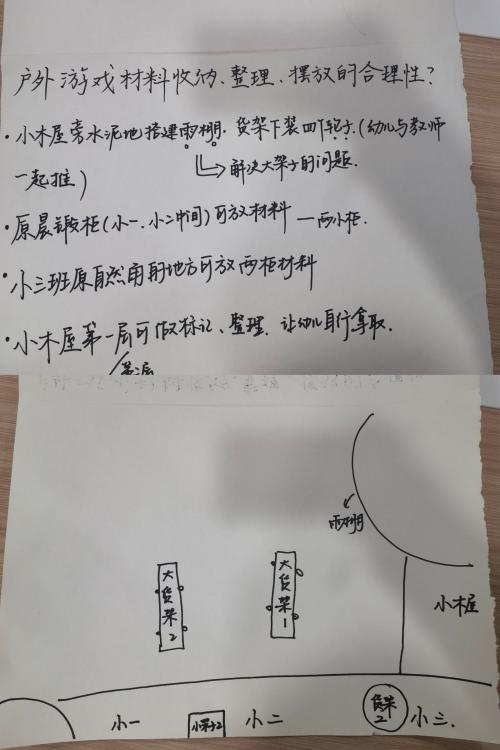 户外游戏材料收纳、整理、摆放的合理性？
·小木屋旁水泥地搭建雨棚.货架下装四个轮子.(幼儿与教师
解决大架子的问题.
一起推)
·原晨锻柜(小一、小二中间)可放材料—两小柜.
·小三班原自然角的地方可放两柜材料
·小木屋第一层可做标记、整理、让幼儿自行拿取.
第二层
雨棚
大货架1
大货架2
小木屋
货架2
小一
小二
小三.